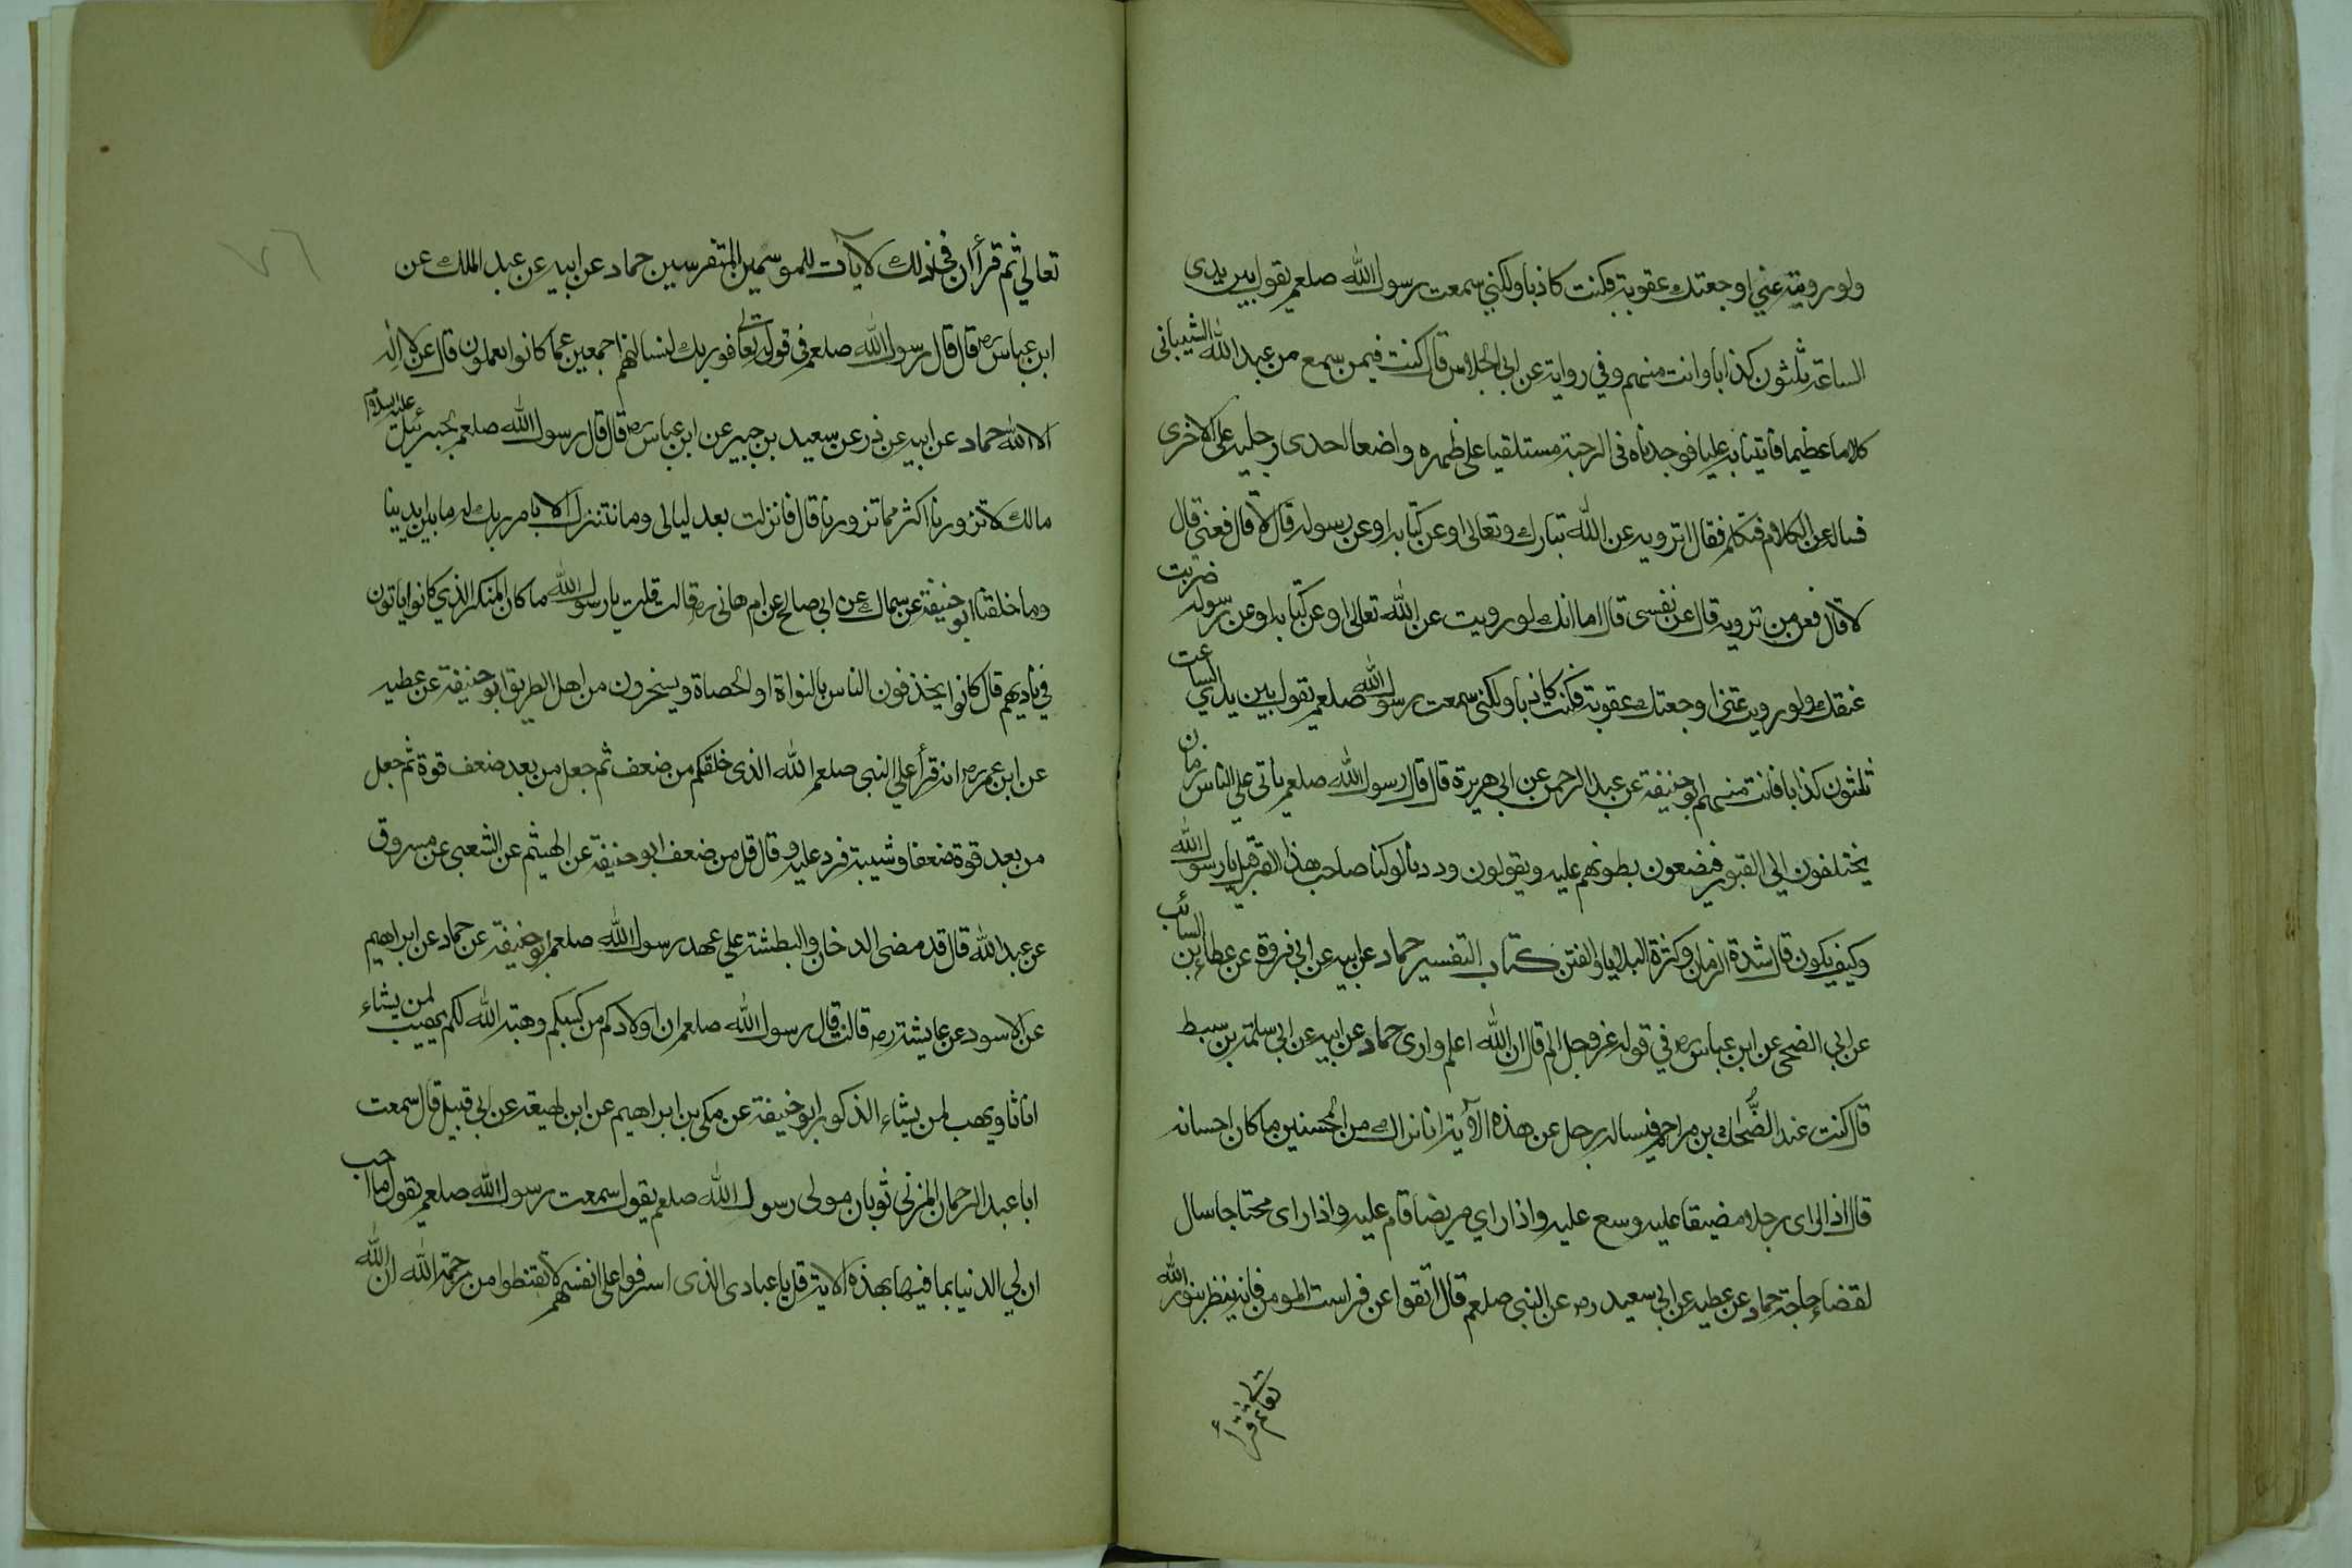 ولو رويته عني اوجعتك عقوبة فكنت كاذبا ولكني سمعت رسول الله صلعم يقول بين يدى
الساعة ثلثون كذابا وانت منهم وفي رواية عن ابي الجلاس قال كنت فيمن سمع من عبد الله الشيبانى
كلاما عظيما فأتينا به عليا فوجدناه في الرحبة مستلقيا على ظهره واضعا احدى رجليه على الاخرى
فساله عن الكلام فتكلم فقال اترويه عن الله تبارك وتعالى او عن كتابه او عن رسوله قال لا قال فعني قال
لا قال فعن من ترويه قال عن نفسى قال اما انك لو رويت عن الله تعالى او عن كتابه او عن رسوله ضربت
عنقك ولو رويت عني اوجعتك عقوبة فكنت كاذبا ولكني سمعت رسول الله صلعم يقول بين يدي الساعت
ثلثون كذابا فانت منهم ابو حنيفة عن عبد الرحمن عن ابي هريرة قال قال رسول الله صلعم يأتى علي الناس زمان
يختلفون الي القبور فيضعون بطونهم عليه ويقولون وددنا لو كنا صاحب هذا القبر قيل يا رسول الله
وكيف يكون قال شدة الزمان وكثرة البلايا والفتن كتاب التفسير حماد عن ابيه عن ابي فروة عن عطاء بن السائب
عن ابي الضحى عن ابن عباس رض في قوله عز وجل الم قال ان الله اعلم وارى حماد عن ابيه عن ابي سلمة بن سبط
قال كنت عند الضحاك بن مزاحم فساله رجل عن هذه الآية انا نراك من المحسنين ما كان احسانه
قال اذا راى رجلا مضيقا عليه وسع عليه واذا راي مريضا قام عليه واذا راى محتاجا سال
لقضاء حاجته حماد عن عطيه عن ابي سعيد رض عن النبي صلعم قال اتقوا عن فراست المومن فانه ينظر بنور الله
تعالى ثم قرأ
٧٦
تعالي ثم قرأ ان في ذلك لآيات للموسمين المتفرسين حماد عن ابيه عن عبد الملك عن
ابن عباس رض قال قال رسول الله صلعم في قوله تعالى فوربك لنسالنهم اجمعين عما كانوا يعملون قال عن لا اله
الا الله حماد عن ابيه عن ذر عن سعيد بن جبير عن ابن عباس رض قال قال رسول الله صلعم لجبرئيل عليه السلام
مالك لا تزورنا اكثر مما تزورنا قال فانزلت بعد ليالى وما نتنزل الا بامر ربك له ما بين ايدينا
وما خلفنا ابو حنيفة عن سماك عن ابي صالح عن ام هانى رض قالت قلت يا رسول الله ما كان المنكر الذي كانوا ياتون
في ناديهم قال كانوا يخذفون الناس بالنواة او الحصاة ويسخرون من اهل الطريق ابو حنيفة عن عطيه
عن ابن عمر رض انه قرأ علي النبي صلعم الله الذى خلقكم من ضعف ثم جعل من بعد ضعف قوة ثم جعل
من بعد قوة ضعفا وشيبة فرد عليه وقال قل من ضعف ابو حنيفة عن الهيثم عن الشعبي عن مسروق
عن عبد الله قال قد مضى الدخان والبطشة علي عهد رسول الله صلعم ابو حنيفة عن حماد عن ابراهيم
عن الاسود عن عايشة رض قالت قال رسول الله صلعم ان اولادكم من كسبكم وهبة الله لكم يهب لمن يشاء
اناثا ويهب لمن يشاء الذكور ابو حنيفة عن مكى بن ابراهيم عن ابن لهيعة عن ابي قبيل قال سمعت
ابا عبد الرحمان المزنى ثوبان مولى رسول الله صلعم يقول سمعت رسول الله صلعم يقول ما احب
ان لي الدنيا بما فيها بهذه الاية قل يا عبادى الذى اسرفوا على انفسهم لا تقنطوا من رحمة الله ان الله